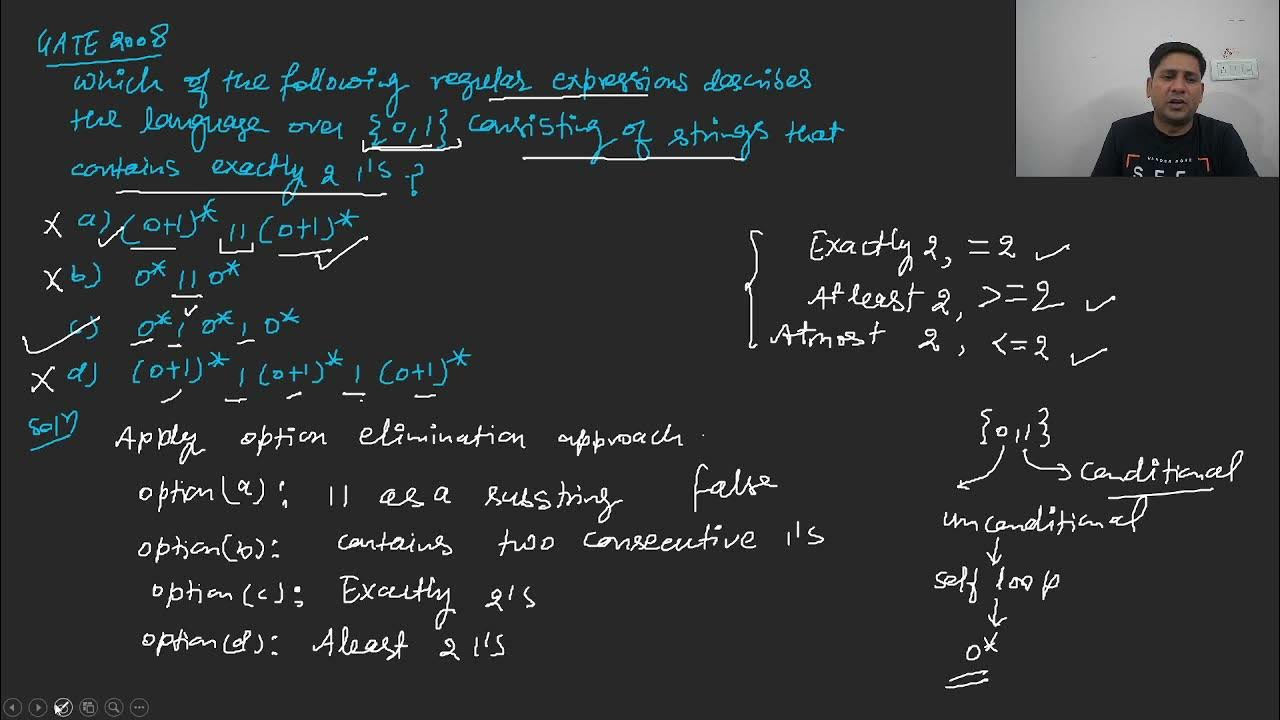 GATE 2008
which of the following regular expressions describes
the language over {0,1} consisting of strings that
contains exactly 2 1's ?
X a) (0+1)* 11 (0+1)*
X b) 0* 11 0*
c) 0* 1 0* 1 0*
X d) (0+1)* 1 (0+1)* 1 (0+1)*
Exactly 2, = 2 ✓
Atleast 2, >= 2 ✓
Atmost 2, <= 2 ✓
Sol^n
Apply option elimination approach.
option(a): 11 as a substring false
option(b): contains two consecutive 1's
option(c): Exactly 2's
option(d): Aleast 2 1's
{0,1}
conditional
unconditional
self loop
0*
SEF